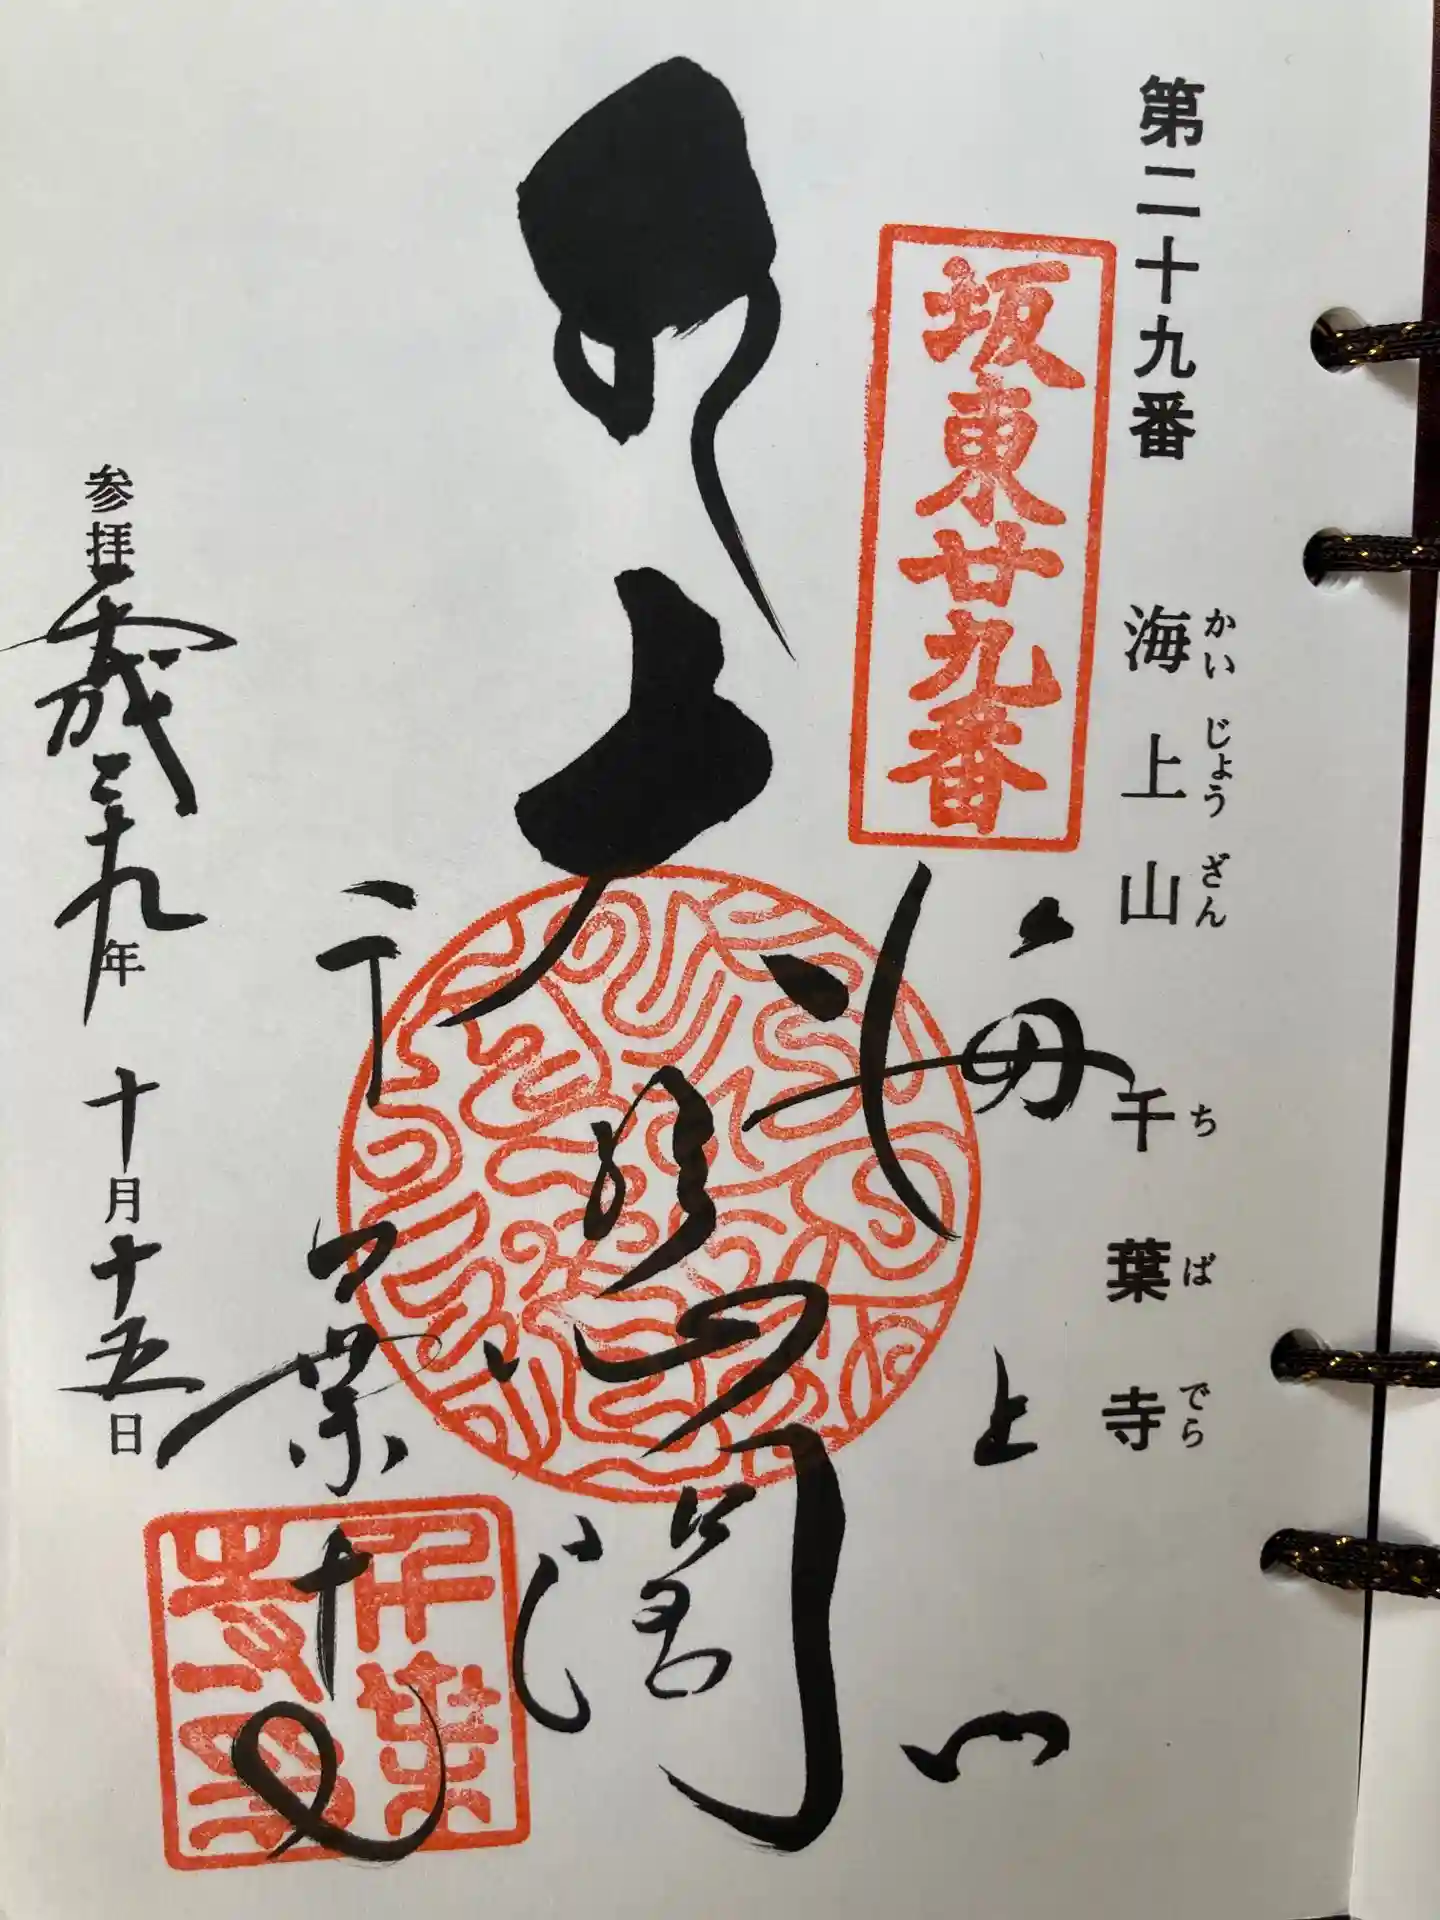 第二十九番 海上山 千葉寺
かいじょうざん ちばでら
坂東廿九番
海上山
大悲閣
千葉寺
参拝 平成二十九年 十月十五日